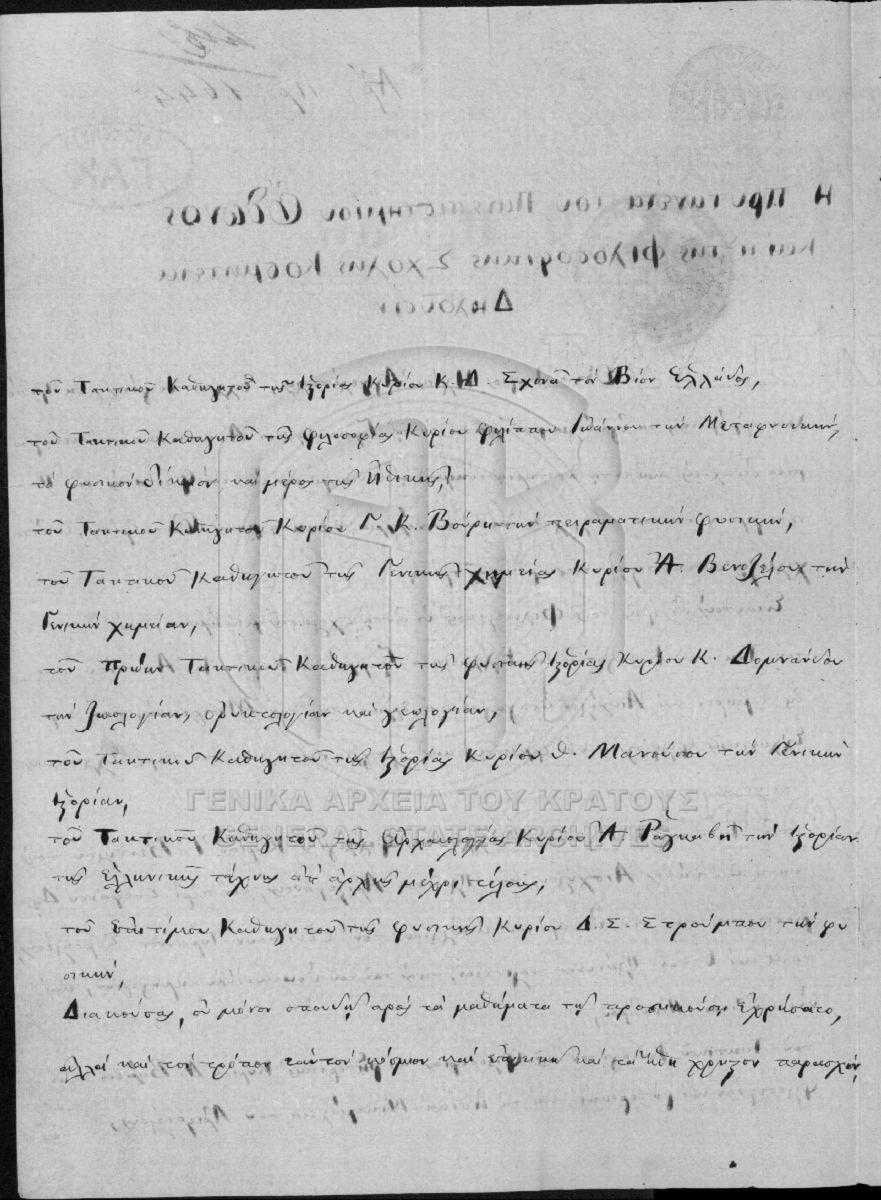 τοῦ Τακτικοῦ Καθηγητοῦ τῆς Ἱστορίας Κυρίου Κ. Δ. Σχινᾶ τὸν Βίον Ἑλλάδος,
τοῦ Τακτικοῦ Καθηγητοῦ τῆς φιλοσοφίας Κυρίου Φιλίππου Ἰωάννου τὴν Μεταφυσικήν,
τὸ φυσικὸν δίκαιον, καὶ μέρος τῆς Ἠθικῆς,
τοῦ Τακτικοῦ Καθηγητοῦ Κυρίου Γ. Κ. Βούρη τὴν πειραματικὴν φυσικήν,
τοῦ Τακτικοῦ Καθηγητοῦ τῆς Γενικῆς χημείας Κυρίου Ἀ. Βενιζέλου τὴν
Γενικὴν χημείαν,
τοῦ πρώην Τακτικοῦ Καθηγητοῦ τῆς φυσικῆς Ἱστορίας Κυρίου Κ. Δομνάνδου
τὴν ζωολογίαν, ὀρυκτολογίαν καὶ γεωλογίαν,
τοῦ Τακτικοῦ Καθηγητοῦ τῆς Ἱστορίας Κυρίου Θ. Μανούσου τὴν Γενικὴν
Ἱστορίαν,
ΓΕΝΙΚΑ ΑΡΧΕΙΑ ΤΟΥ ΚΡΑΤΟΥΣ
τοῦ Τακτικοῦ Καθηγητοῦ τῆς Ἀρχαιολογίας Κυρίου Ἀ Ραγκαβῆ τὴν Ἱστορίαν
GENERAL STATE ARCHIVES
τῆς Ἑλληνικῆς τέχνης ἀπ' ἀρχῆς μέχρι τέλους,
τοῦ ἐπιτίμου Καθηγητοῦ τῆς φυσικῆς Κυρίου Δ. Σ. Στρούμπου τὴν φυ
σικήν,
Διακούσας, οὐ μόνον σπουδῇ πρὸς τὰ μαθήματα τῇ προσηκούσῃ ἐχρήσατο,
ἀλλὰ καὶ τὸν τρόπον ἑαυτὸν κόσμιον καὶ ἐπιεικῆ καὶ τὰ ἤθη χρηστὸν παρασχών,